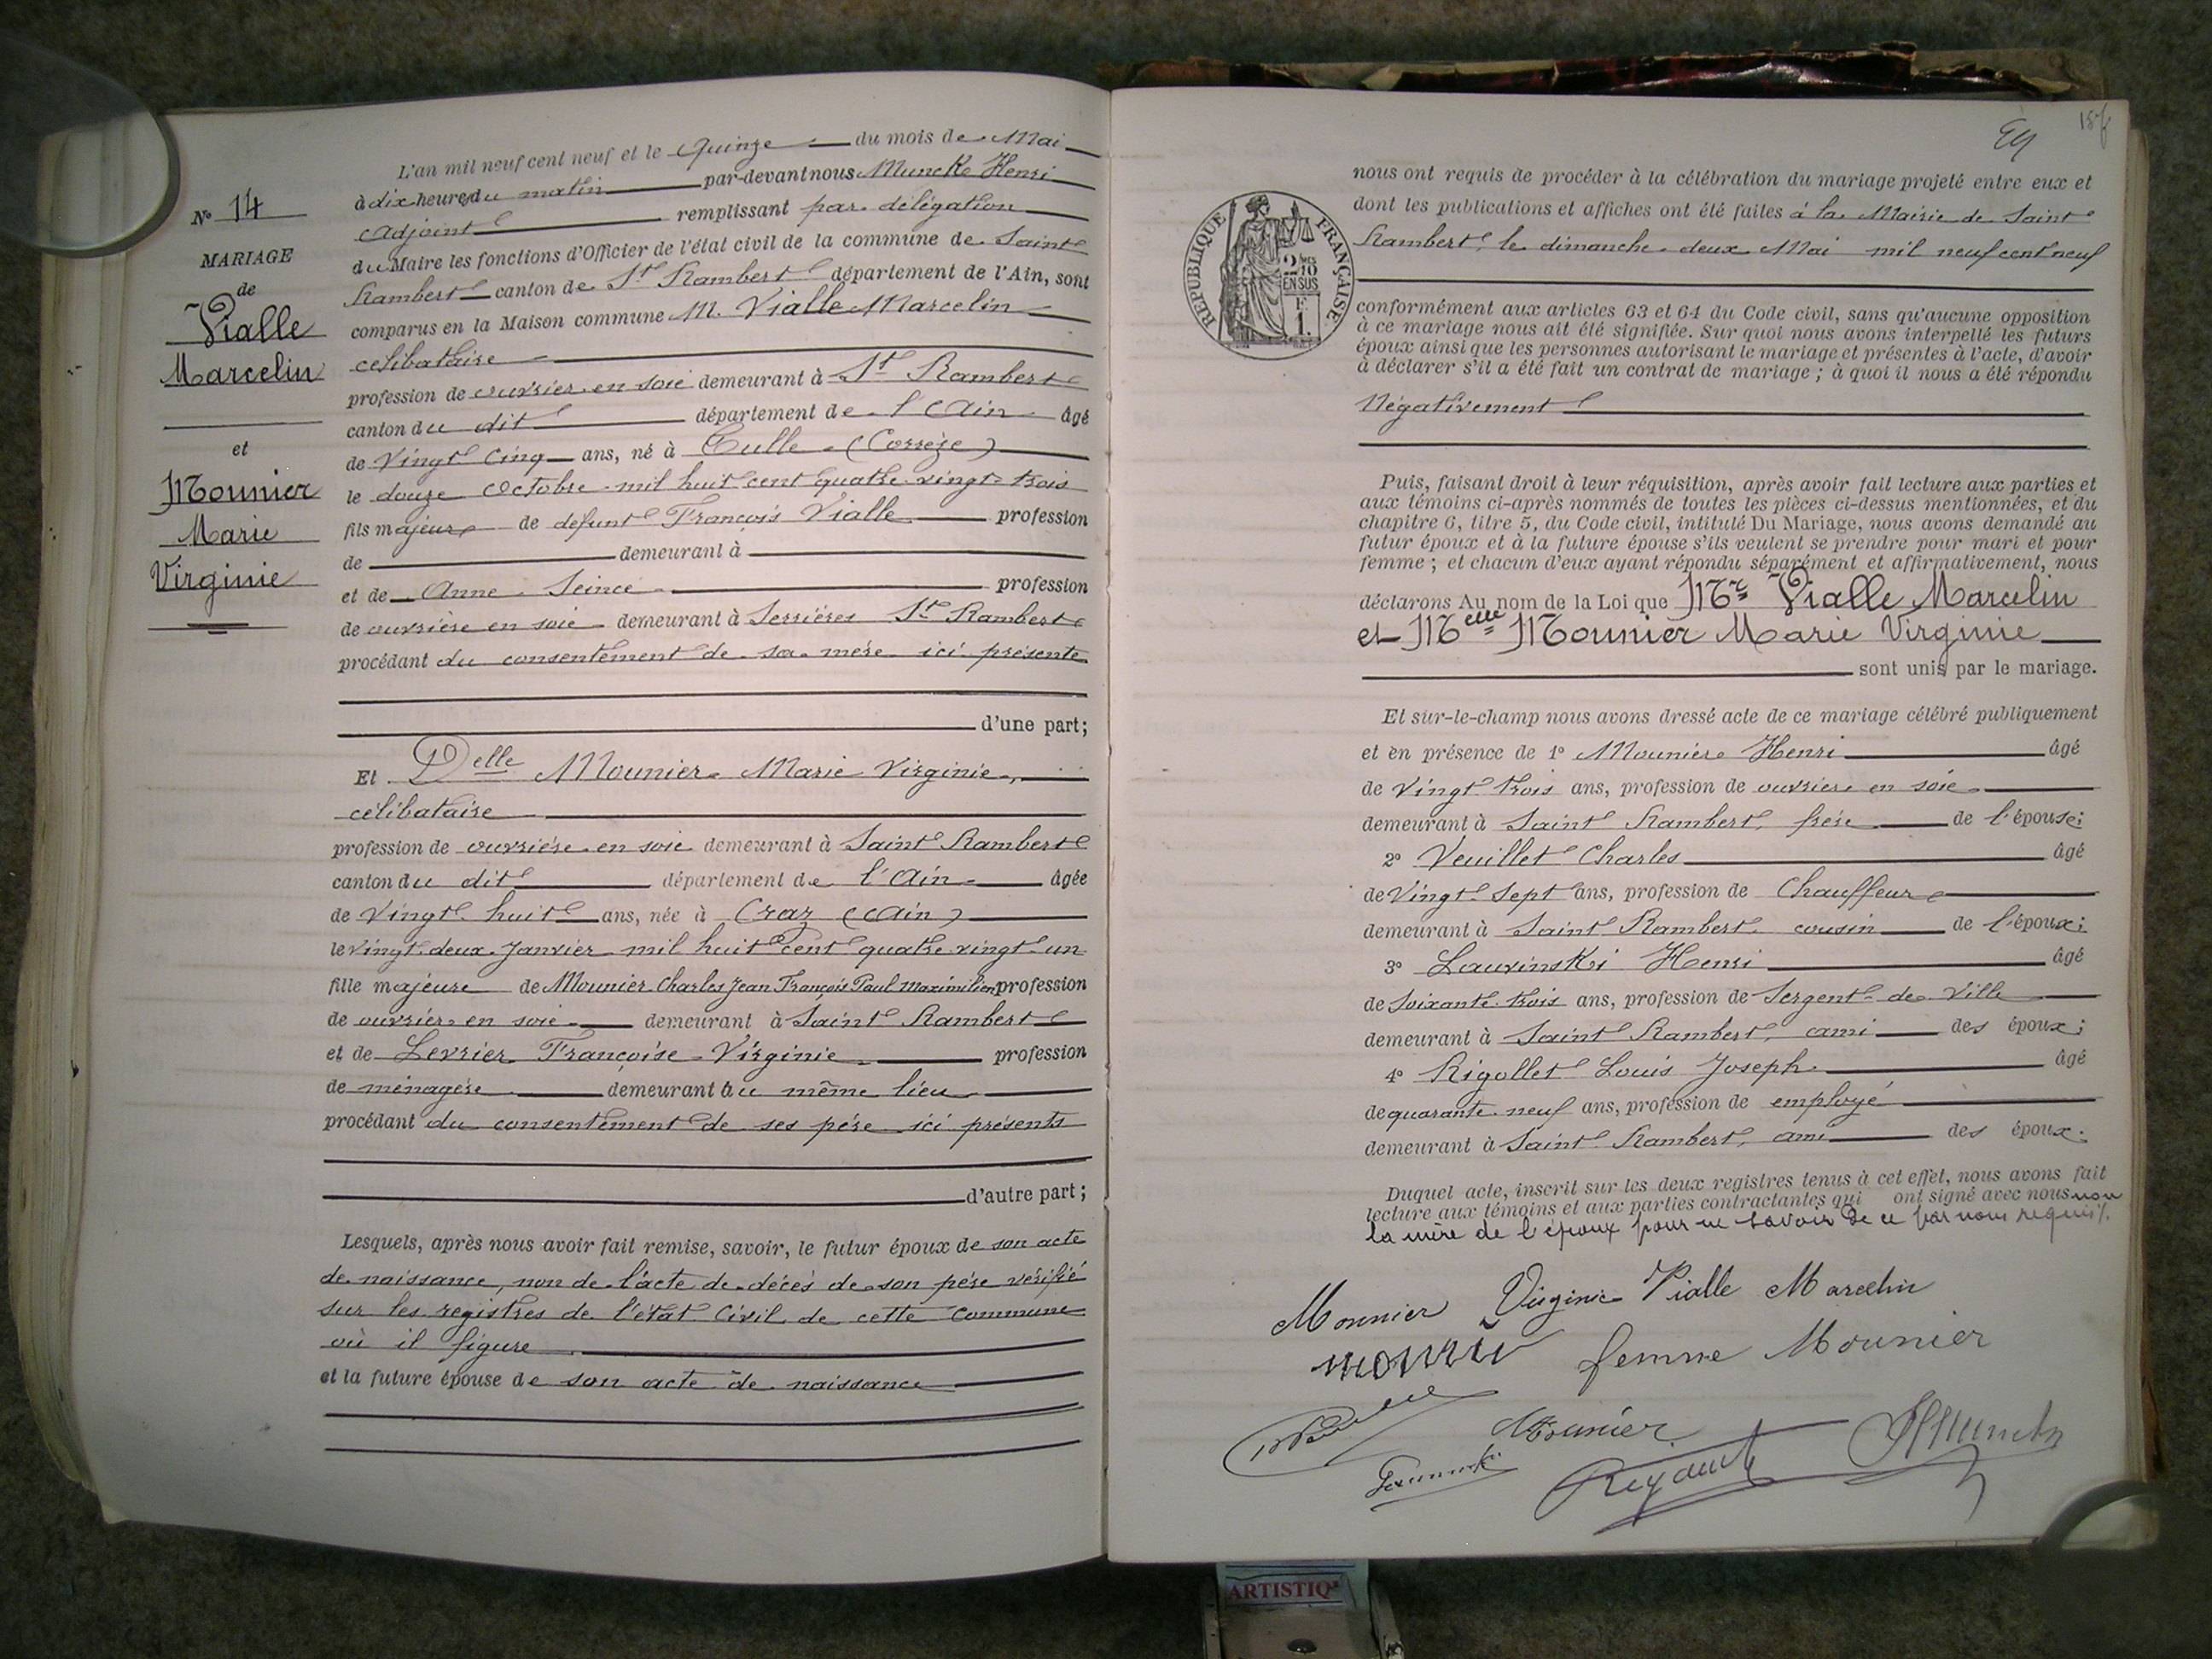 N° 14
MARIAGE
de
Vialle
Marcelin
et
Mounier
Marie
Virginie
L'an mil neuf cent neuf et le quinze du mois de Mai
à dix heures du matin par-devant nous Munck Henri
adjoint remplissant par délégation
du Maire les fonctions d'Officier de l'état civil de la commune de Saint
Rambert canton de St Rambert département de l'Ain, sont
comparus en la Maison commune M. Vialle Marcelin
célibataire
profession de ouvrier en soie demeurant à St Rambert
canton du dit département de l'Ain âgé
de Vingt cinq ans, né à Tulle (Corrèze)
le douze Octobre mil huit cent quatre vingt trois
fils majeur de défunt François Vialle profession
de demeurant à
et de Anne Seince profession
de ouvrière en soie demeurant à Serrières St Rambert
procédant du consentement de sa mère ici présente
d'une part;
Et Delle Mounier Marie Virginie,
célibataire
profession de ouvrière en soie demeurant à Saint Rambert
canton du dit département de l'Ain âgée
de Vingt huit ans, née à Craz (Ain)
le vingt deux Janvier mil huit cent quatre vingt un
fille majeure de Mounier Charles Jean François Paul Maximilien profession
de ouvrier en soie demeurant à Saint Rambert
et de Levrier Françoise Virginie profession
de ménagère demeurant au même lieu
procédant du consentement de ses père ici présents
d'autre part;
Lesquels, après nous avoir fait remise, savoir, le futur époux de son acte
de naissance, non de l'acte de décès de son père vérifié
sur les registres de l'état civil de cette commune
où il figure
et la future épouse de son acte de naissance
RÉPUBLIQUE FRANÇAISE
2/10 EN SUS
F 1.
nous ont requis de procéder à la célébration du mariage projeté entre eux et
dont les publications et affiches ont été faites à la Mairie de Saint
Rambert, le dimanche deux Mai mil neuf cent neuf
conformément aux articles 63 et 64 du Code civil, sans qu'aucune opposition
à ce mariage nous ait été signifiée. Sur quoi nous avons interpellé les futurs
époux ainsi que les personnes autorisant le mariage et présentes à l'acte, d'avoir
à déclarer s'il a été fait un contrat de mariage ; à quoi il nous a été répondu
Négativement
Puis, faisant droit à leur réquisition, après avoir fait lecture aux parties et
aux témoins ci-après nommés de toutes les pièces ci-dessus mentionnées, et du
chapitre 6, titre 5, du Code civil, intitulé Du Mariage, nous avons demandé au
futur époux et à la future épouse s'ils veulent se prendre pour mari et pour
femme ; et chacun d'eux ayant répondu séparément et affirmativement, nous
déclarons Au nom de la Loi que Mr Vialle Marcelin
et Melle Mounier Marie Virginie
sont unis par le mariage.
Et sur-le-champ nous avons dressé acte de ce mariage célébré publiquement
et en présence de 1° Mounier Henri âgé
de Vingt trois ans, profession de ouvrier en soie
demeurant à Saint Rambert, frère de l'épouse;
2° Veuillet Charles âgé
de Vingt sept ans, profession de Chauffeur
demeurant à Saint Rambert cousin de l'époux;
3° Lauvinski Henri âgé
de Soixante trois ans, profession de Sergent de Ville
demeurant à Saint Rambert, ami des époux;
4° Rigollet Louis Joseph âgé
de quarante neuf ans, profession de employé
demeurant à Saint Rambert, ami des époux.
Duquel acte, inscrit sur les deux registres tenus à cet effet, nous avons fait
lecture aux témoins et aux parties contractantes qui ont signé avec nous non
la mère de l'époux pour ne savoir de ce par nous requis.
Mounier Virginie Vialle Marcelin
femme Mounier
Mounier
ARTISTIQ